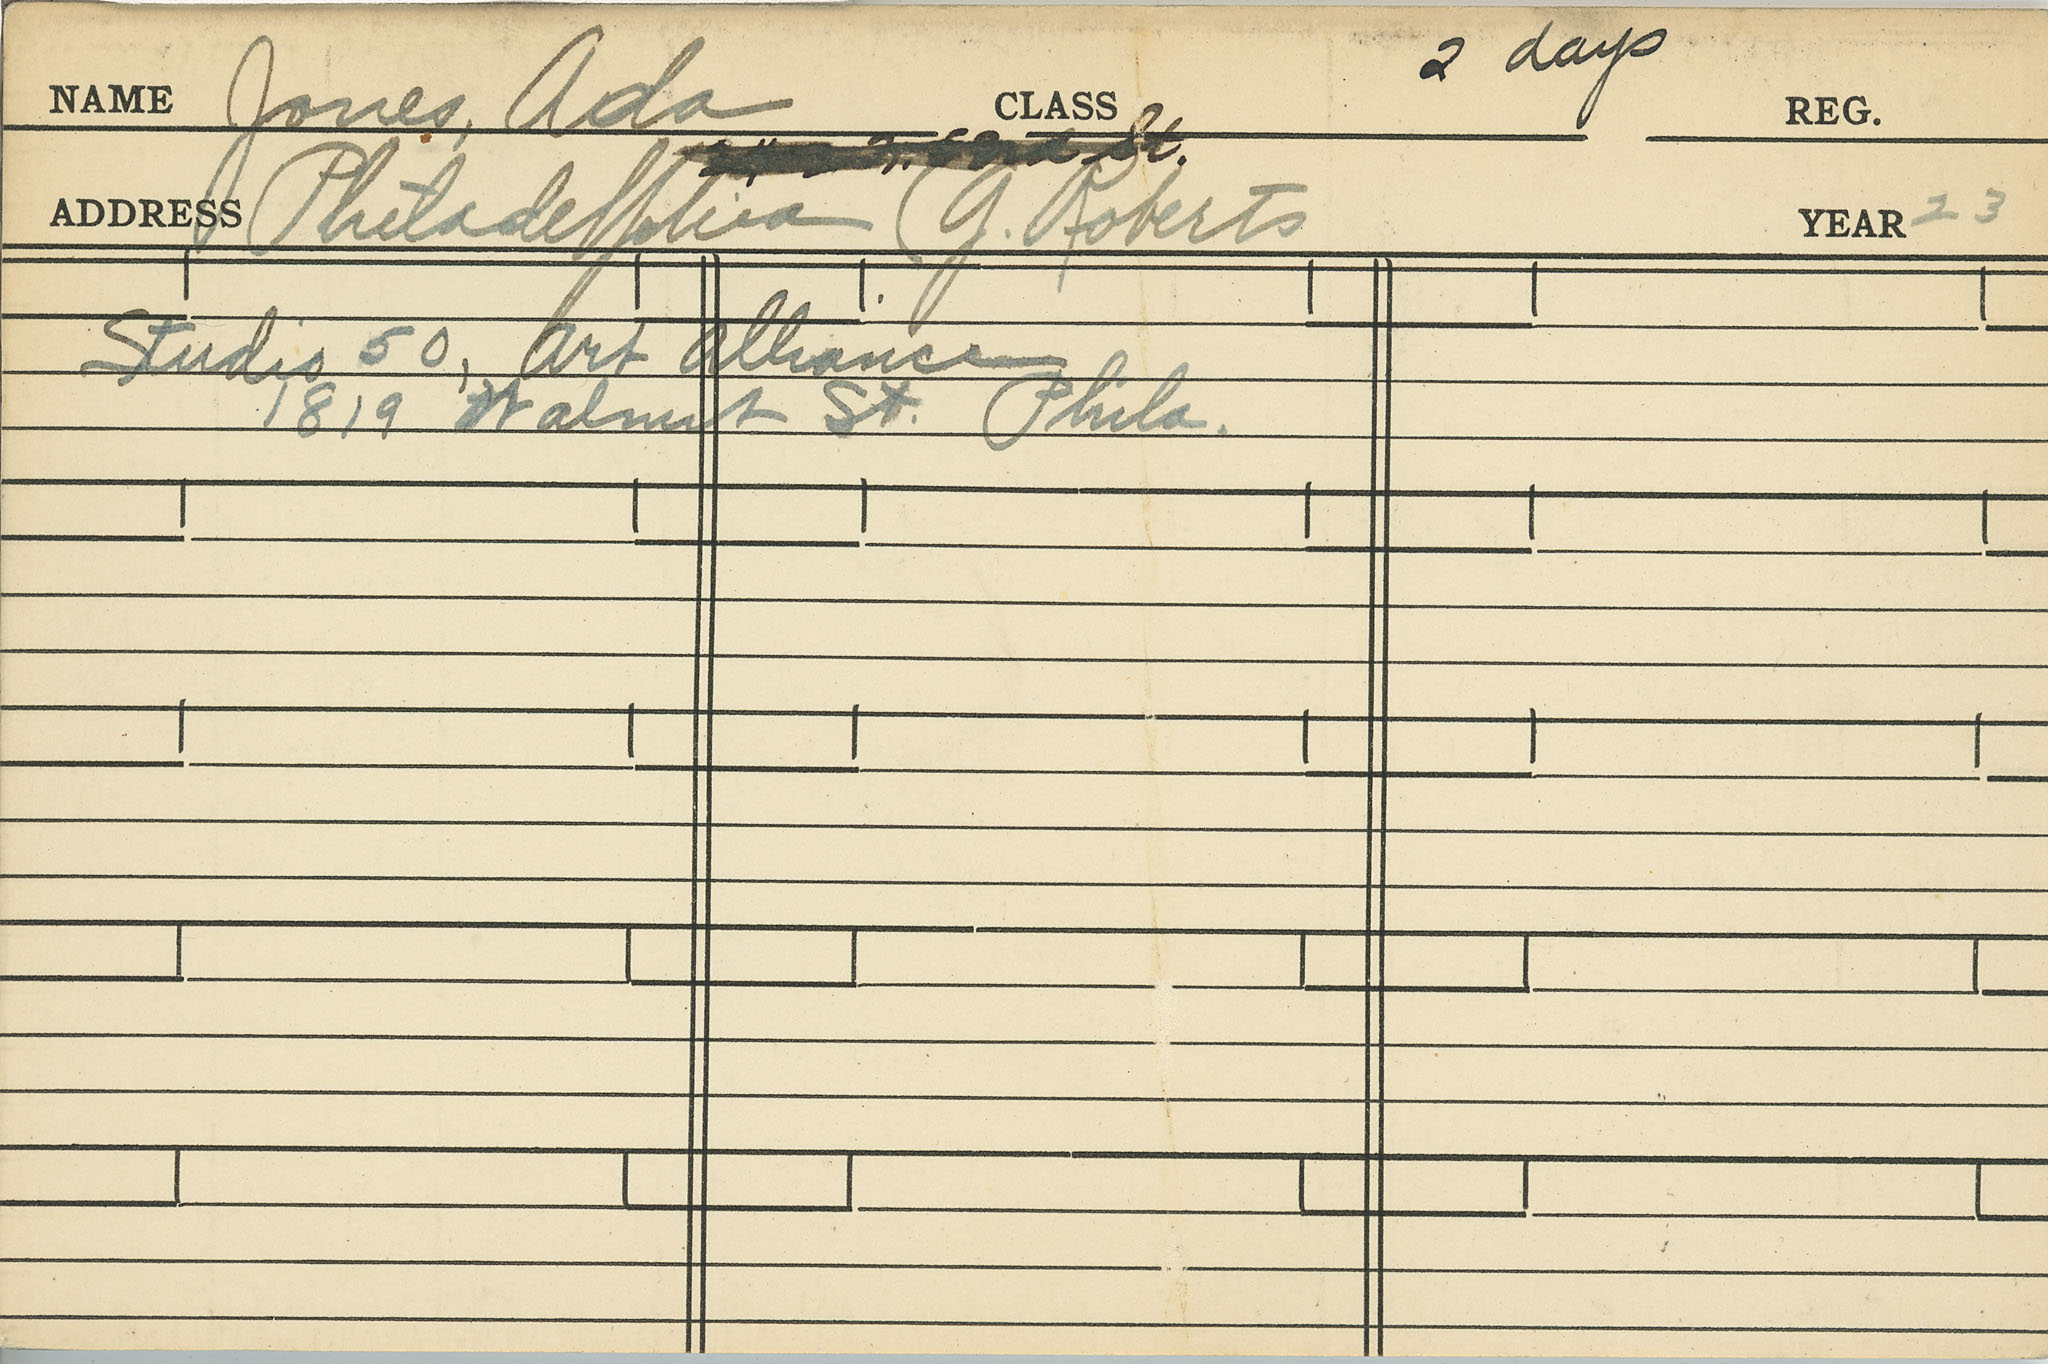 2 days
NAME Jones, Ada CLASS REG.
St.
ADDRESS Philadelphia (G. Roberts YEAR 23
Studio 50, Art Alliance
1819 Walnut St. Phila.